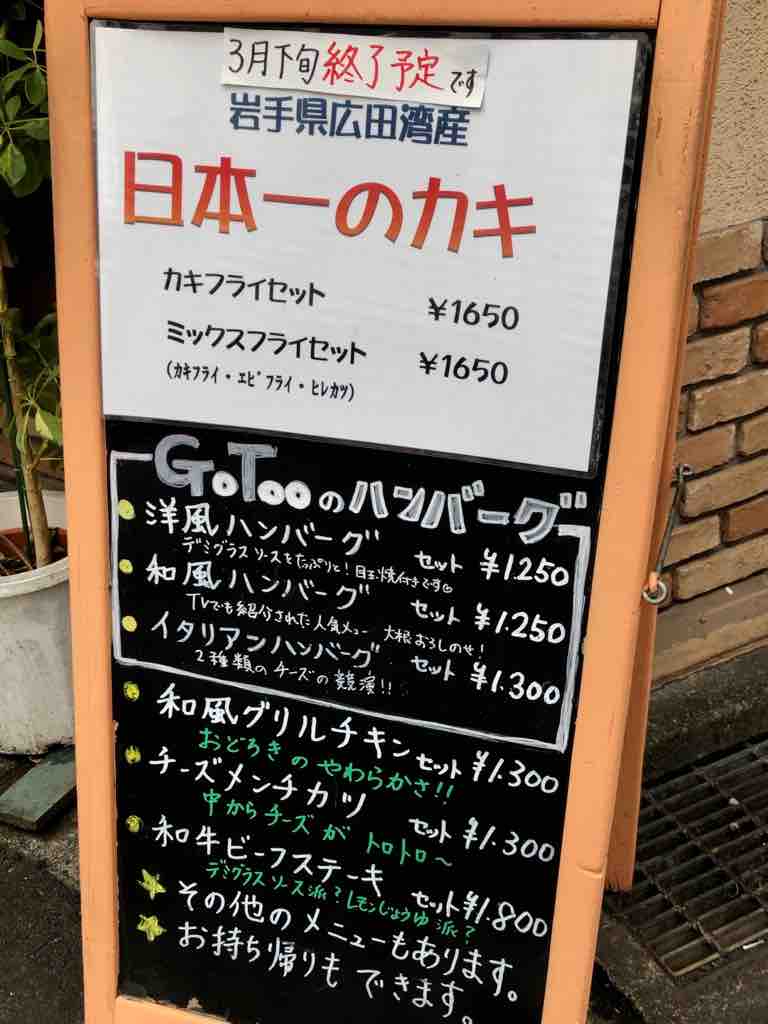 3月下旬終了予定です
岩手県広田湾産
日本一のカキ
カキフライセット ¥1650
ミックスフライセット ¥1650
(カキフライ・エビフライ・ヒレカツ)
GoTooのハンバーグ
洋風ハンバーグ セット ¥1.250
デミグラスソースをたっぷりと!目玉焼付きです
和風ハンバーグ セット ¥1.250
TVでも紹介された人気メニュー 大根おろしのせ!
イタリアンハンバーグ セット ¥1.300
2種類のチーズの競演!!
和風グリルチキン セット ¥1.300
おどろきのやわらかさ!!
チーズメンチカツ セット ¥1.300
中からチーズがトロトロ〜
和牛ビーフステーキ セット ¥1.800
デミグラスソース派?レモンじょうゆ派?
☆その他のメニューもあります。
☆お持ち帰りもできます。